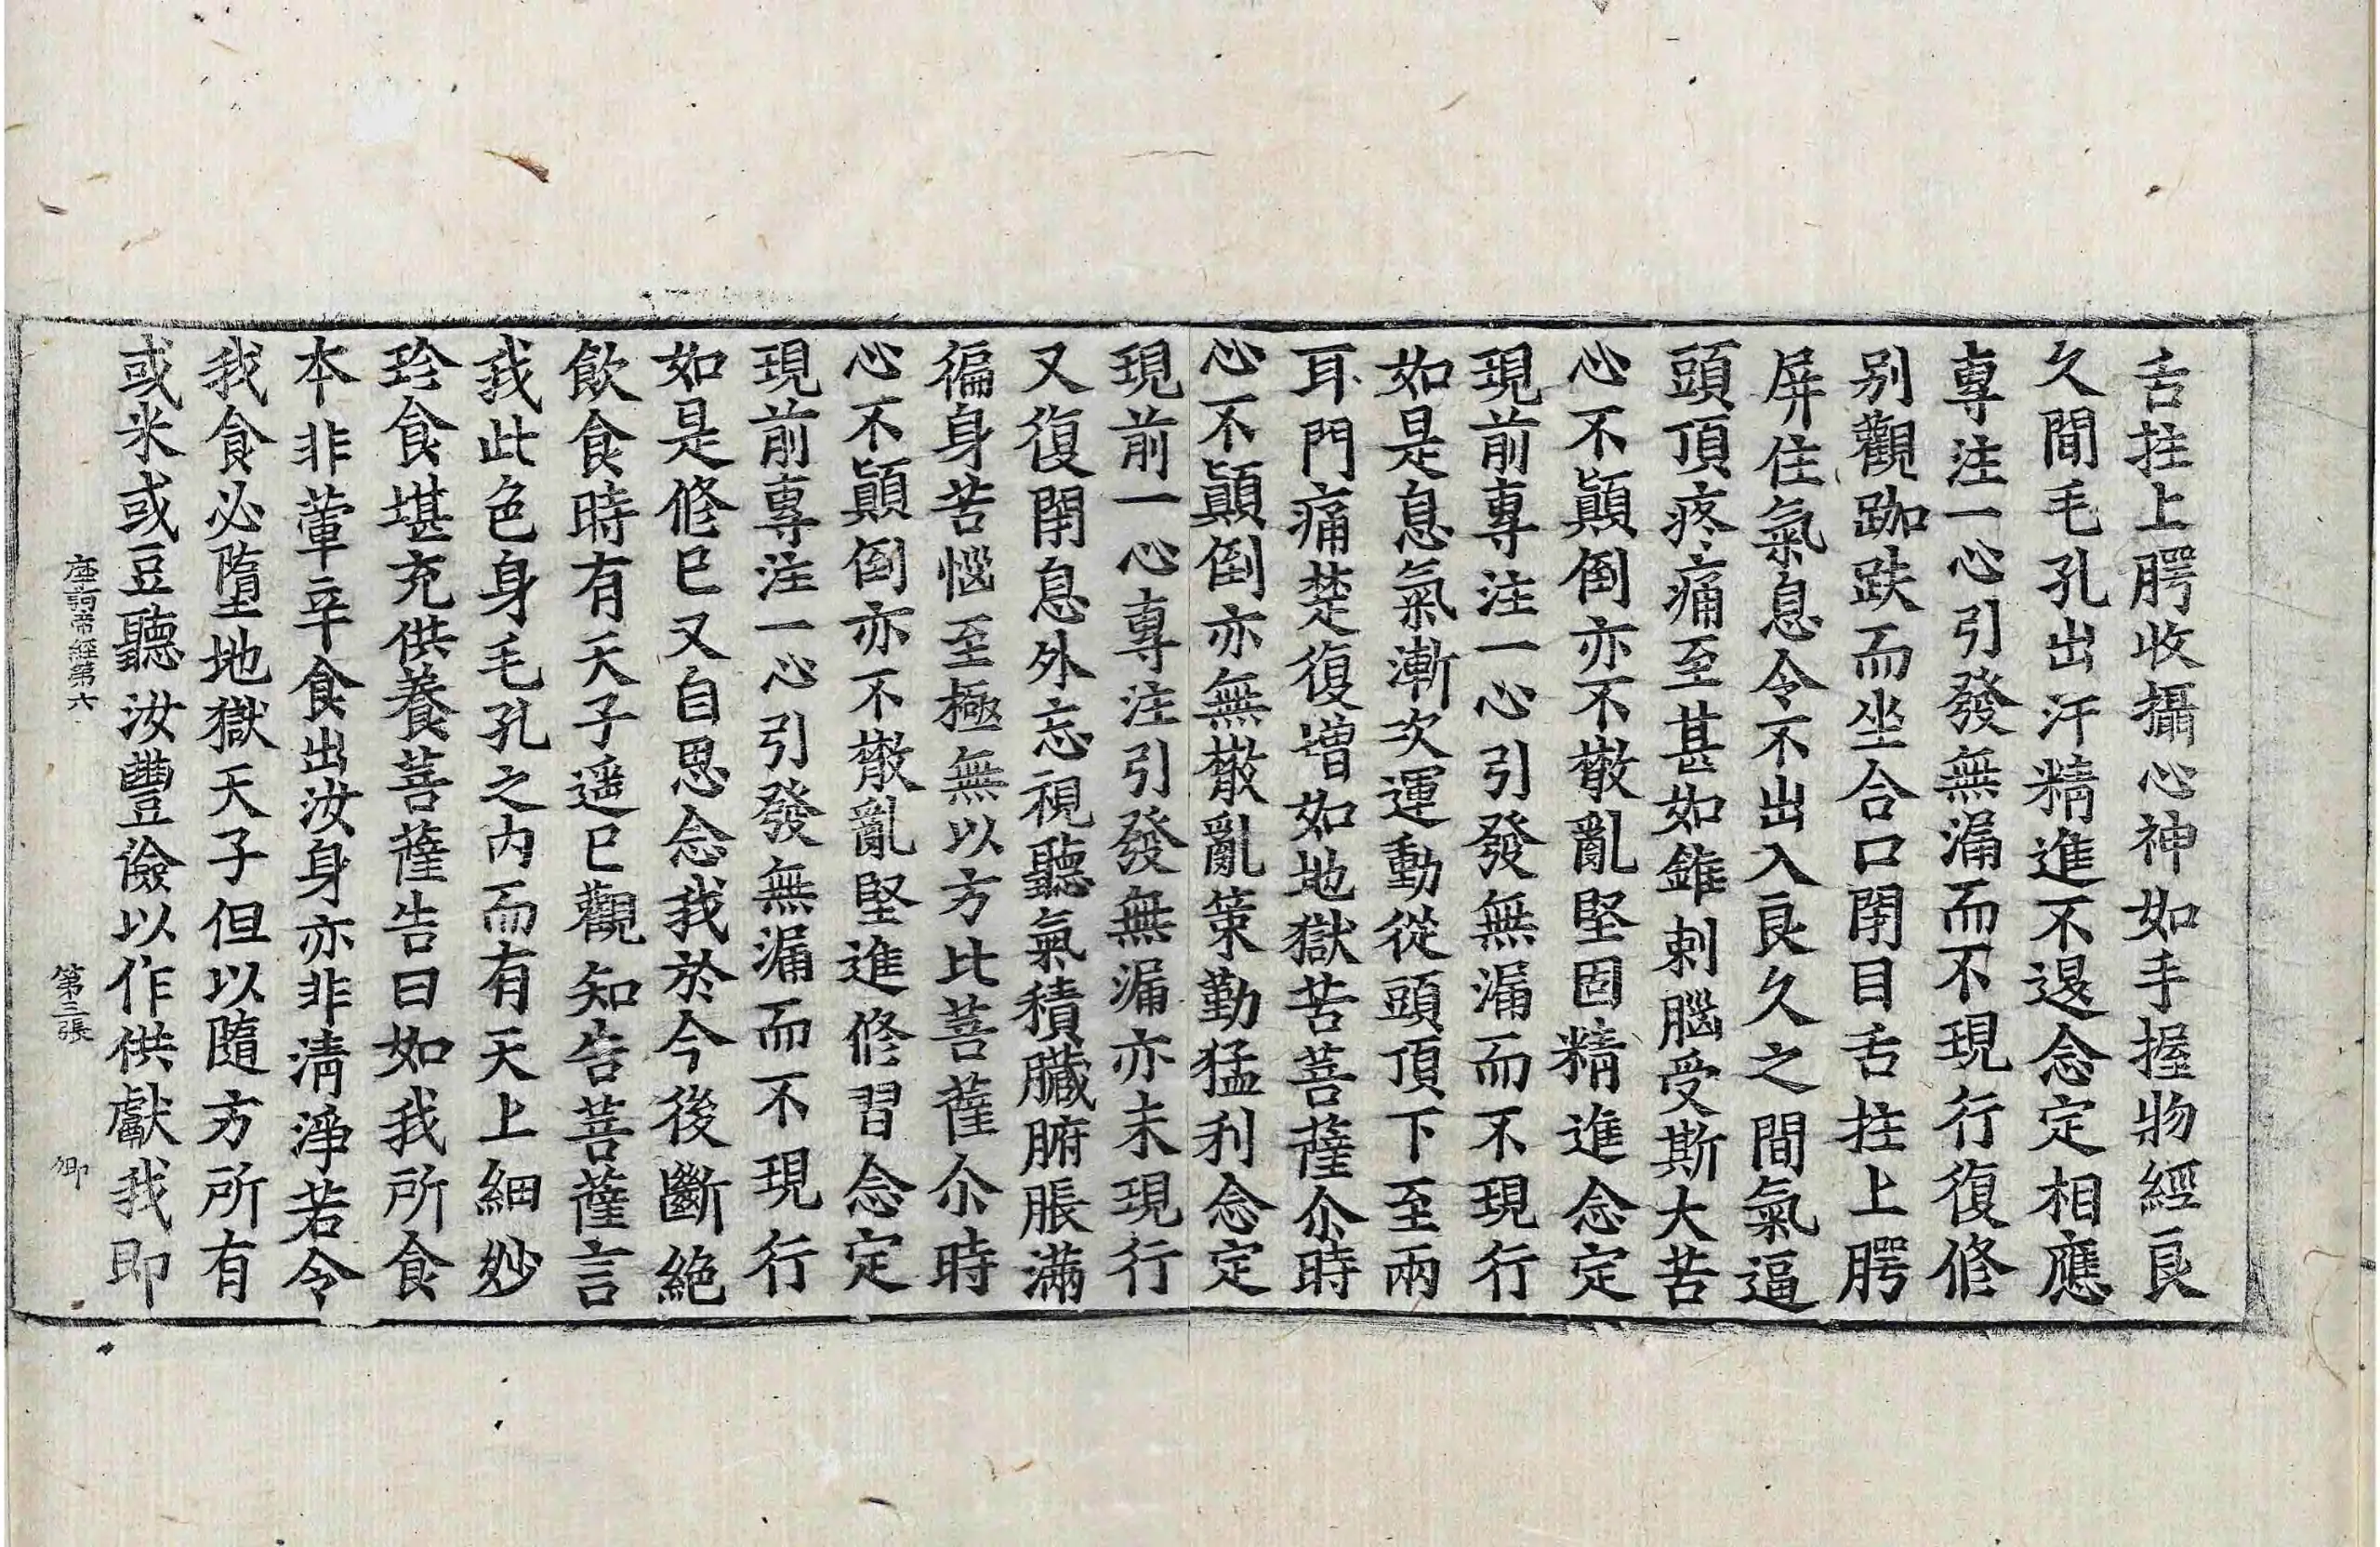 舌拄上腭收攝心神如手握物經良
久間毛孔出汗精進不退念定相應
專注一心引發無漏而不現行復修
别觀跏趺而坐合口閉目舌拄上腭
屏住氣息令不出入良久之間氣逼
頭頂疼痛至甚如錐刺腦受斯大苦
心不顛倒亦不散亂堅固精進念定
現前專注一心引發無漏而不現行
如是息氣漸次運動從頭頂下至兩
耳門痛楚復增如地獄苦菩薩尒時
心不顛倒亦無散亂策勤猛利念定
現前一心專注引發無漏亦未現行
又復閉息外忘視聽氣積臟腑脹滿
徧身苦惱至極無以方比菩薩尒時
心不顛倒亦不散亂堅進修習念定
現前專注一心引發無漏而不現行
如是修已又自思念我於今後斷絶
飲食時有天子遥已觀知告菩薩言
我此色身毛孔之内而有天上細妙
珍食堪充供養菩薩告曰如我所食
本非葷辛食出汝身亦非清淨若令
我食必墮地獄天子但以隨方所有
或米或豆聽汝豐儉以作供獻我即
帝經第六 第三張 卿